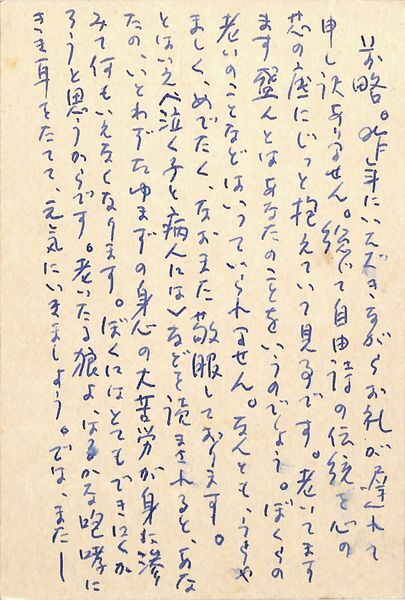 前略。昨年にいただきながらお礼が遅れて
申し訳ありません。総じて自由詩の伝統を心の
芯の底にじっと抱えていて見事です。老いてます
ます盛んとはあなたのことをいうのでしょう。ぼくらの
老いのことなどはいっていられません。なんとも、うらや
ましく、めでたく、なおまた敬服しております。
とはいえ〈泣く子と病人には〉などを読まされると、あな
たの、いとわずたゆまずの身心の大苦労が身に滲
みて何もいえなくなります。ぼくにはとてもできにくか
ろうと思うからです。老いたる狼よ、はるかな咆哮に
きき耳をたてて、元気にいきましょう。では、また―